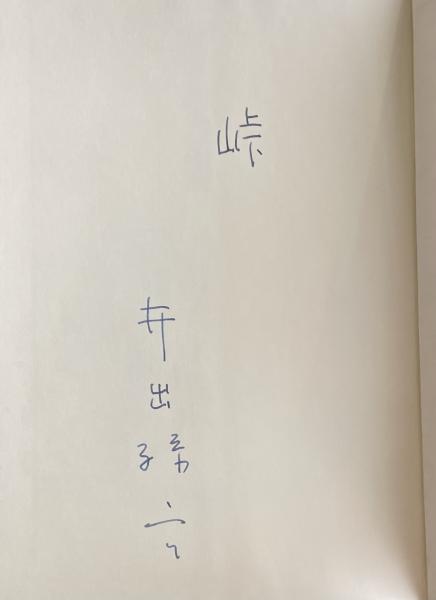 峠
井出孫六